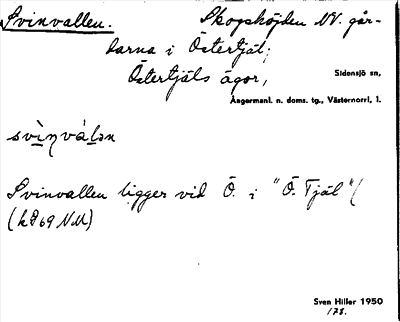 Svinvallen. Skogshöjden NV. går-
darna i Östertjäl;
Östertjäls ägor, Sidensjö sn,
Ångermanl. n. doms. tg., Västernorrl. l.
svìnvàlən
Svinvallen ligger vid Ö. i "Ö. Tjäl" (
69 NM)
Sven Hiller 1950
178.